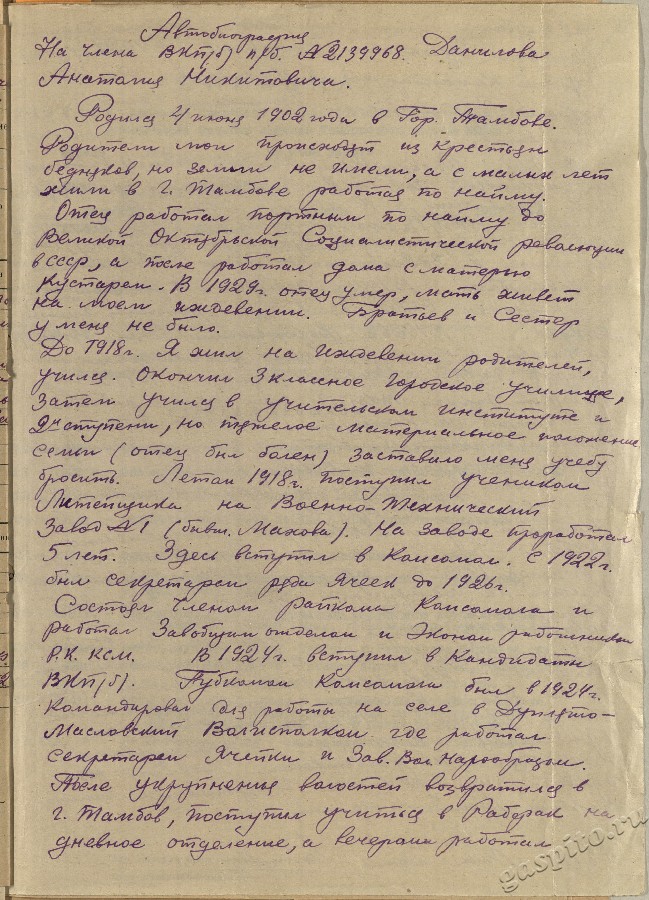 Автобиография
На члена ВКП(б) п/б. №2139968. Данилова
Анатолия Никитовича.
Родился 4 июня 1902 года в Гор. Тамбове.
Родители мои происходят из крестьян
бедняков, но земли не имели, а с малых лет
жили в г. Тамбове работая по найму.
Отец работал портным по найму до
Великой Октябрьской Социалистической революции
в СССР, а после работал дома с матерью
кустарем. В 1929г. отец умер, мать живет
на моем иждевении. Братьев и Сестер
у меня не было.
До 1918г. Я жил на иждевении родителей,
учился. Окончил 3 классное Городское училище,
Затем учился в учительском институте и
ступени, но тяжелое материальное положение
семьи (отец был болен) заставило меня учебу
бросить. Летом 1918г. поступил учеником
Литейщика на Военно-Технический
Завод №1 (бывш. Махова). На заводе проработал
5 лет. Здесь вступил в Комсомол. С 1922г.
был секретарем ряда Ячеек до 1926г.
Состоял Членом райкома Комсомола и
работал Завобщим отделом и Эконом работником
Р.К. КСМ. В 1924г. вступил в Кандидаты
ВКП(б). Губкомом Комсомола был в 1924г.
Командирован для работы на селе в
Масловский Волисполком где работал
секретарем Ячейки и Зав. Вол. Нарообразом.
После укрупнения волостей возвратился в
г. Тамбов, поступил учиться в Рабфак на
дневное отделение, а вечерами работал
gaspito.ru